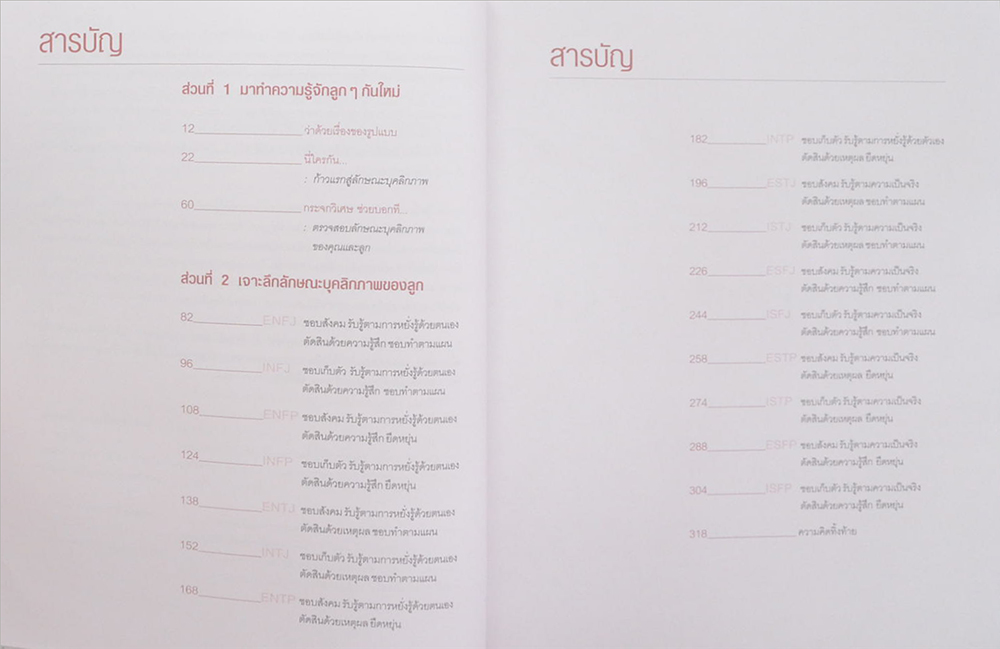 สารบัญ
ส่วนที่ 1 มาทำความรู้จักลูก ๆ กันใหม่
12 ว่าด้วยเรื่องของรูปแบบ
22 นี่ใครกัน...
: ก้าวแรกสู่ลักษณะบุคลิกภาพ
60 กระจกวิเศษ ช่วยบอกที...
: ตรวจสอบลักษณะบุคลิกภาพ
ของคุณและลูก
ส่วนที่ 2 เจาะลึกลักษณะบุคลิกภาพของลูก
82 ENFJ ชอบสังคม รับรู้ตามการหยั่งรู้ด้วยตนเอง
ตัดสินด้วยความรู้สึก ชอบทำตามแผน
96 INFJ ชอบเก็บตัว รับรู้ตามการหยั่งรู้ด้วยตนเอง
ตัดสินด้วยความรู้สึก ชอบทำตามแผน
108 ENFP ชอบสังคม รับรู้ตามการหยั่งรู้ด้วยตนเอง
ตัดสินด้วยความรู้สึก ยืดหยุ่น
124 INFP ชอบเก็บตัว รับรู้ตามการหยั่งรู้ด้วยตนเอง
ตัดสินด้วยความรู้สึก ยืดหยุ่น
138 ENTJ ชอบสังคม รับรู้ตามการหยั่งรู้ด้วยตนเอง
ตัดสินด้วยเหตุผล ชอบทำตามแผน
152 INTJ ชอบเก็บตัว รับรู้ตามการหยั่งรู้ด้วยตนเอง
ตัดสินด้วยเหตุผล ชอบทำตามแผน
168 ENTP ชอบสังคม รับรู้ตามการหยั่งรู้ด้วยตนเอง
ตัดสินด้วยเหตุผล ยืดหยุ่น
สารบัญ
182 INTP ชอบเก็บตัว รับรู้ตามการหยั่งรู้ด้วยตัวเอง
ตัดสินด้วยเหตุผล ยืดหยุ่น
196 ESTJ ชอบสังคม รับรู้ตามความเป็นจริง
ตัดสินด้วยเหตุผล ชอบทำตามแผน
212 ISTJ ชอบเก็บตัว รับรู้ตามความเป็นจริง
ตัดสินด้วยเหตุผล ชอบทำตามแผน
226 ESFJ ชอบสังคม รับรู้ตามความเป็นจริง
ตัดสินด้วยความรู้สึก ชอบทำตามแผน
244 ISFJ ชอบเก็บตัว รับรู้ตามความเป็นจริง
ตัดสินด้วยความรู้สึก ชอบทำตามแผน
258 ESTP ชอบสังคม รับรู้ตามความเป็นจริง
ตัดสินด้วยเหตุผล ยืดหยุ่น
274 ISTP ชอบเก็บตัว รับรู้ตามความเป็นจริง
ตัดสินด้วยเหตุผล ยืดหยุ่น
288 ESFP ชอบสังคม รับรู้ตามความเป็นจริง
ตัดสินด้วยความรู้สึก ยืดหยุ่น
304 ISFP ชอบเก็บตัว รับรู้ตามความเป็นจริง
ตัดสินด้วยความรู้สึก ยืดหยุ่น
318 ความคิดทิ้งท้าย